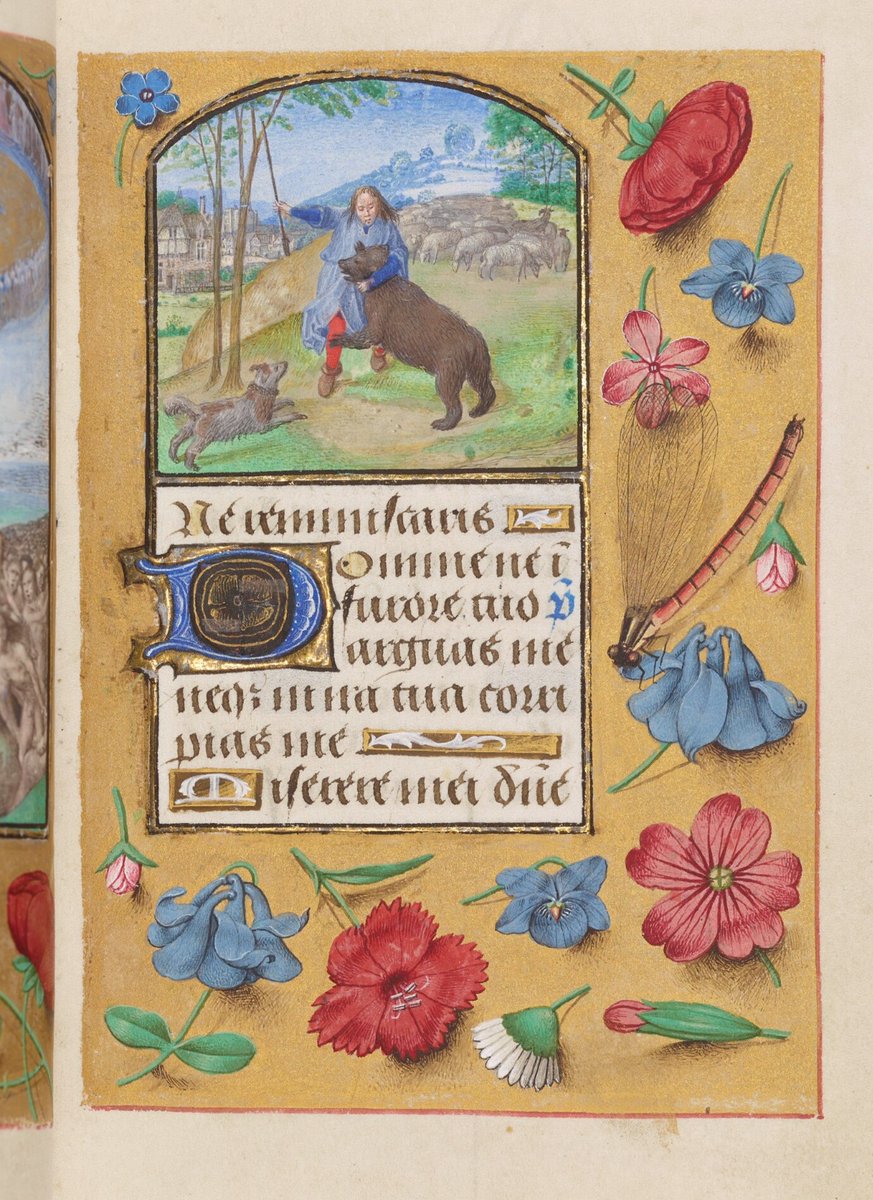 Ne reminiscaris
Domine ne ī
furore tuo p̄
arguas me
neqꝫ in ira tua corri
pias me
Miserere mei dn̄e